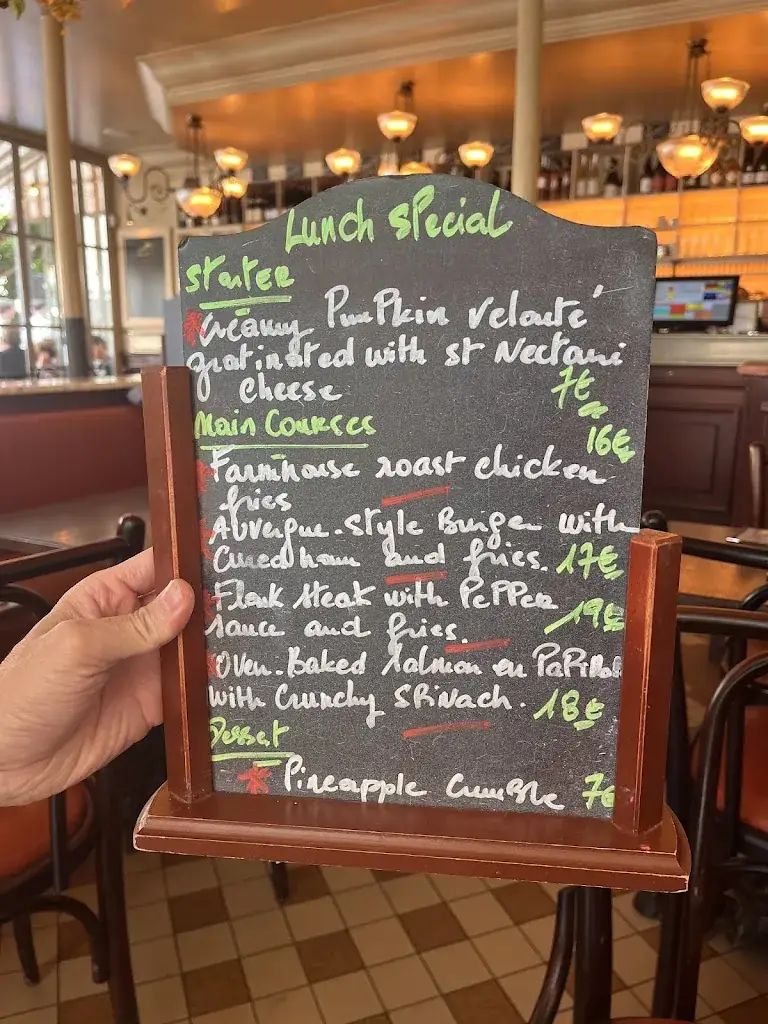 Lunch Special
Starter
Creamy Pumpkin Velouté
gratinated with St Nectaire
cheese
7€
Main Courses
16€
Farmhouse roast chicken
fries
Auvergne-style Burger with
Cured ham and fries. 17€
Flank Steak with Pepper
sauce and fries. 19€
Oven-Baked Salmon en Papillote
with Crunchy Spinach. 18€
Dessert
Pineapple Crumble 7€